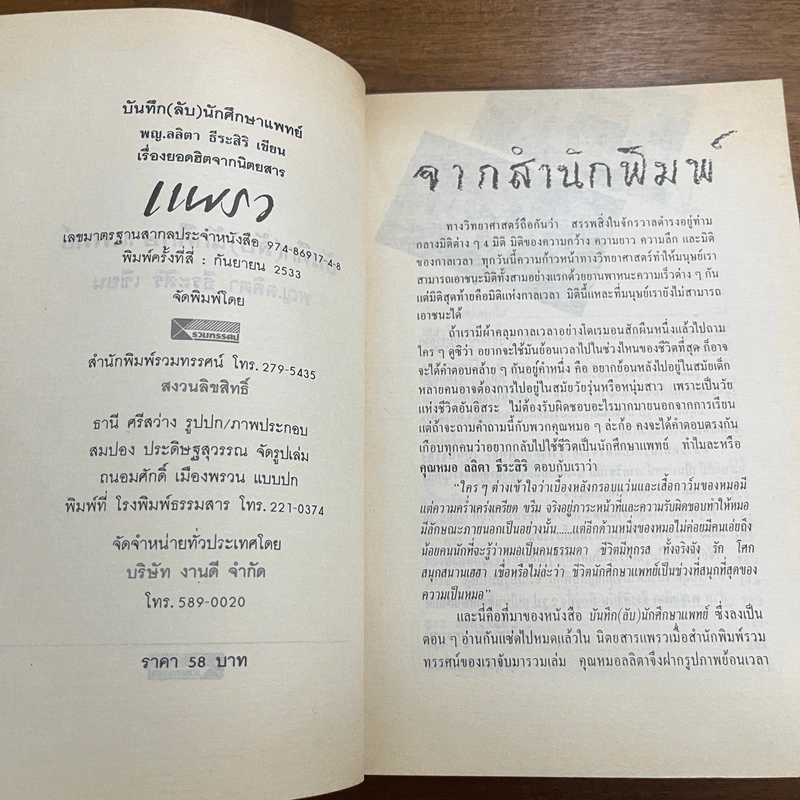 บันทึก(ลับ)นักศึกษาแพทย์
พญ.ลลิตา ธีระสิริ เขียน
เรื่องยอดฮิตจากนิตยสาร
แพรว
เลขมาตรฐานสากลประจำหนังสือ 974-86917-4-8
พิมพ์ครั้งที่สี่ : กันยายน 2533
จัดพิมพ์โดย
รวมทรรศน์
สำนักพิมพ์รวมทรรศน์ โทร. 279-5435
สงวนลิขสิทธิ์
ธานี ศรีสว่าง รูปปก/ภาพประกอบ
สมปอง ประดิษฐสุวรรณ จัดรูปเล่ม
ถนอมศักดิ์ เมืองพรวน แบบปก
พิมพ์ที่ โรงพิมพ์ธรรมสาร โทร. 221-0374
จัดจำหน่ายทั่วประเทศโดย
บริษัท งานดี จำกัด
โทร. 589-0020
ราคา 58 บาท
จากสำนักพิมพ์
ทางวิทยาศาสตร์ถือกันว่า สรรพสิ่งในจักรวาลดำรงอยู่ท่าม
กลางมิติต่าง ๆ 4 มิติ มิติของความกว้าง ความยาว ความลึก และมิติ
ของกาลเวลา ทุกวันนี้ความก้าวหน้าทางวิทยาศาสตร์ทำให้มนุษย์เรา
สามารถเอาชนะมิติทั้งสามอย่างแรกด้วยยานพาหนะความเร็วต่าง ๆ กัน
แต่มิติสุดท้ายคือมิติแห่งกาลเวลา มิตินี้แหละที่มนุษย์เรายังไม่สามารถ
เอาชนะได้
ถ้าเรามีผ้าคลุมกาลเวลาอย่างโดเรมอนสักผืนหนึ่งแล้วไปถาม
ใคร ๆ ดูซิว่า อยากจะใช้มันย้อนเวลาไปในช่วงไหนของชีวิตที่สุด ก็อาจ
จะได้คำตอบคล้าย ๆ กันอยู่คำหนึ่ง คือ อยากย้อนหลังไปอยู่ในสมัยเด็ก
หลายคนอาจต้องการไปอยู่ในสมัยวัยรุ่นหรือหนุ่มสาว เพราะเป็นวัย
แห่งชีวิตอันอิสระ ไม่ต้องรับผิดชอบอะไรมากมายนอกจากการเรียน
แต่ถ้าจะถามคำถามนี้กับพวกคุณหมอ ๆ ล่ะก้อ คงจะได้คำตอบตรงกัน
เกือบทุกคนว่าอยากกลับไปใช้ชีวิตเป็นนักศึกษาแพทย์ ทำไมละหรือ
คุณหมอ ลลิตา ธีระสิริ ตอบกับเราว่า
“ใคร ๆ ต่างเข้าใจว่าเบื้องหลังกรอบแว่นและเสื้อกาว์นของหมอมี
แต่ความคร่ำเคร่งเครียด ขรึม จริงอยู่ภาระหน้าที่และความรับผิดชอบทำให้หมอ
มีลักษณะภายนอกเป็นอย่างนั้น.....แต่อีกด้านหนึ่งของหมอไม่ค่อยมีคนเอ่ยถึง
น้อยคนนักที่จะรู้ว่าหมอเป็นคนธรรมดา ชีวิตมีทุกรส ทั้งจริงจัง รัก โศก
สนุกสนานเฮฮา เชื่อหรือไม่ล่ะว่า ชีวิตนักศึกษาแพทย์เป็นช่วงที่สนุกที่สุดของ
ความเป็นหมอ”
และนี่คือที่มาของหนังสือ บันทึก(ลับ)นักศึกษาแพทย์ ซึ่งลงเป็น
ตอน ๆ อ่านกันแซ่ดไปหมดแล้วใน นิตยสารแพรวเมื่อสำนักพิมพ์รวม
ทรรศน์ของเราจับมารวมเล่ม คุณหมอลลิตาจึงฝากรูปภาพย้อนเวลา